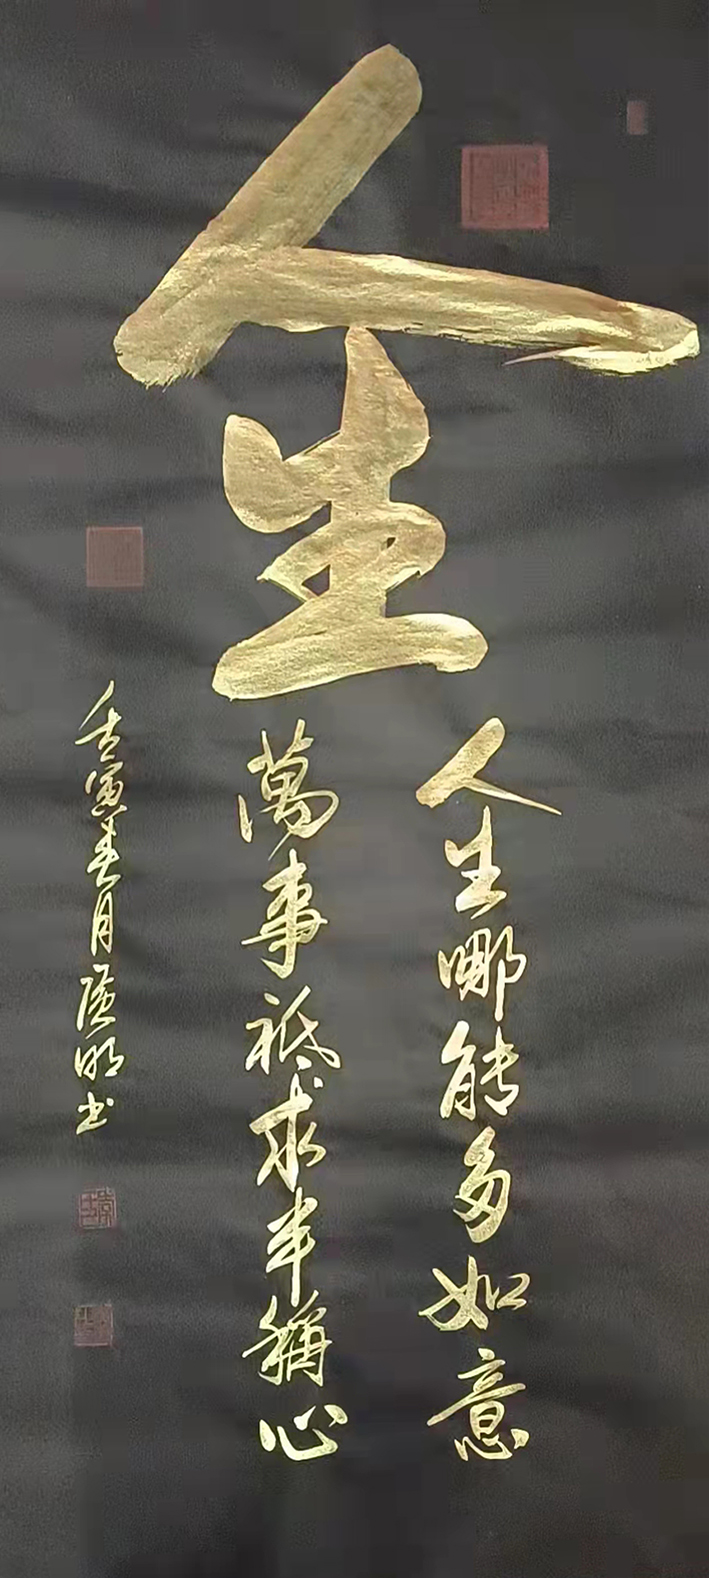 人生
人生哪能多如意
萬事祗求半稱心
壬寅春月广明书